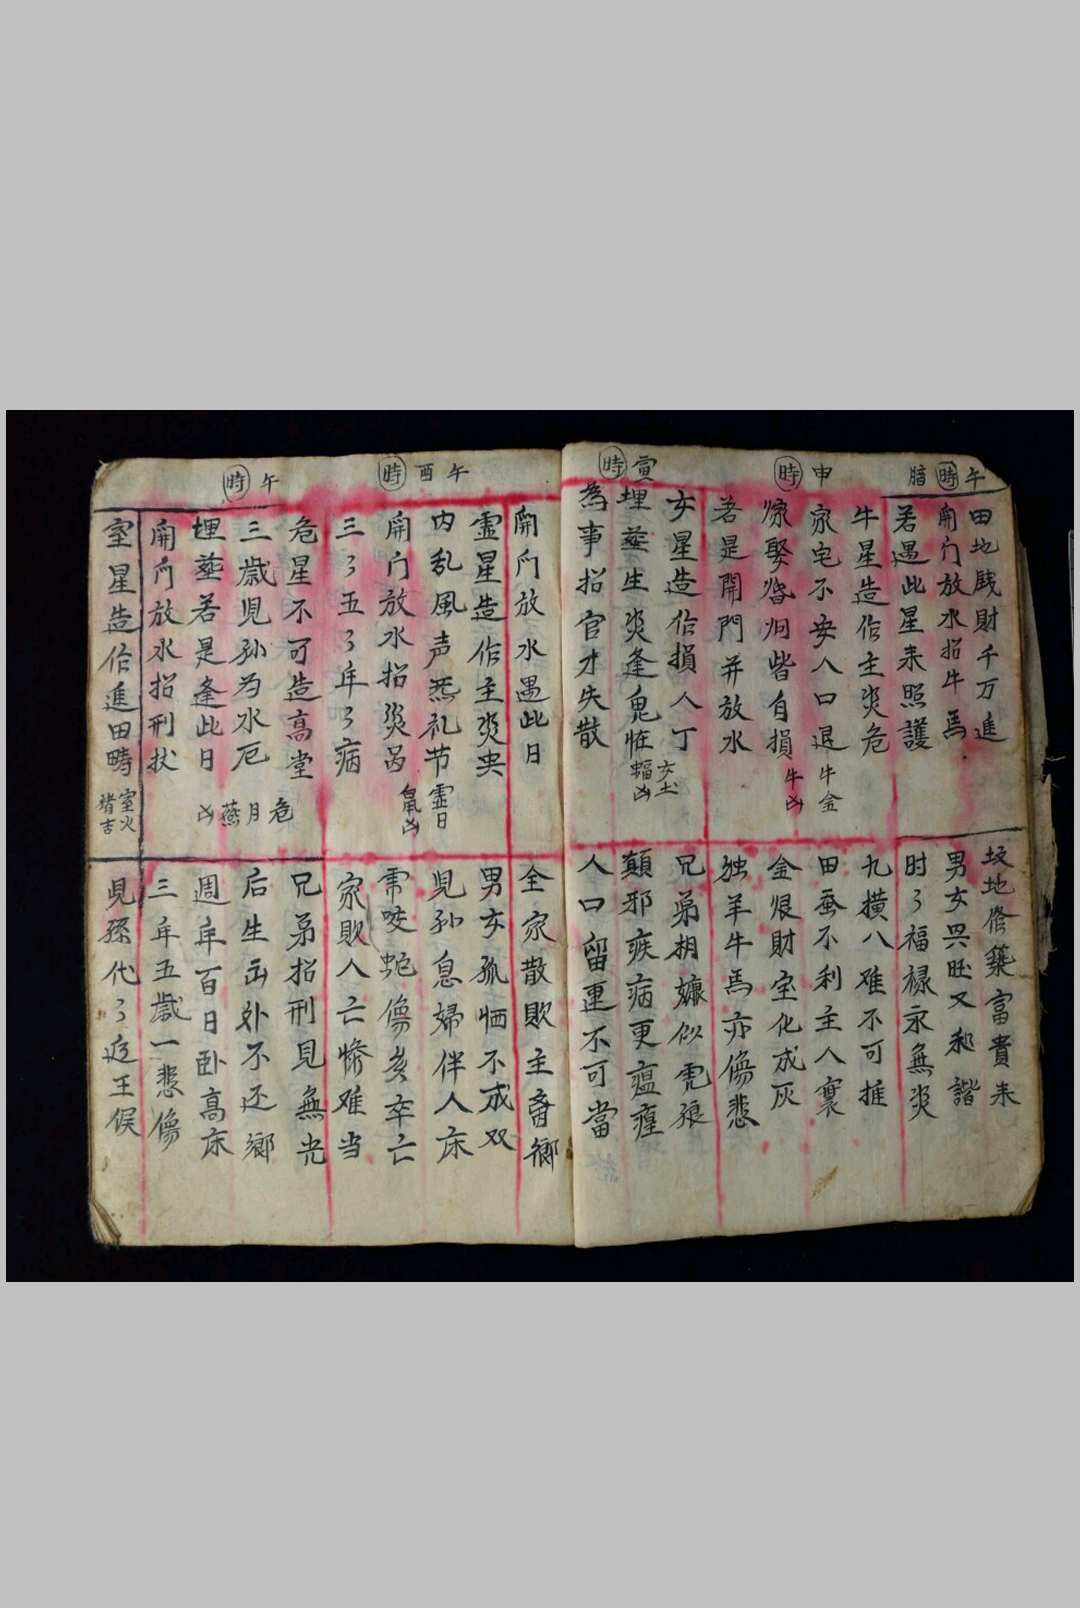 午時暗
田地戝財千万進
開门放水招牛馬
若遇此星来照護
牛星造作主災危
家宅不安人口退
嫁娶婚姻皆自損
若是開門并放水
女星造作損人丁
埋塟生災逢鬼怪
為事招官才失散
申時
牛金
牛凶
宣時
女土
蝠凶
坟地修築富貴来
男女興旺又和諧
时々福禄永無災
九横八难不可推
田蚕不利主人
金艮財宝化成灰
独羊牛馬亦傷悲
兄弟相嫌似虎狼
顛邪疾病更瘟
人口留連不可當
午酉時
開门放水遇此日
虚星造作主災央
内乱風声無礼节
開门放水招災
三々五々年々病
虚日
鼠凶
午時
危星不可造高堂
三歲児孙为水厄
埋塟若是逢此日
開门放水招刑状
危月燕凶
室星造作進田疇
室火
猪吉
全家散敗主离鄉
男女孤恓不成双
児孙息婦伴人床
咬蛇傷亥卒亡
家敗人亡惨难当
兄弟招刑見無光
后生出外不还鄉
週年百日卧高床
三年五歲一悲傷
児孫代々近王侯